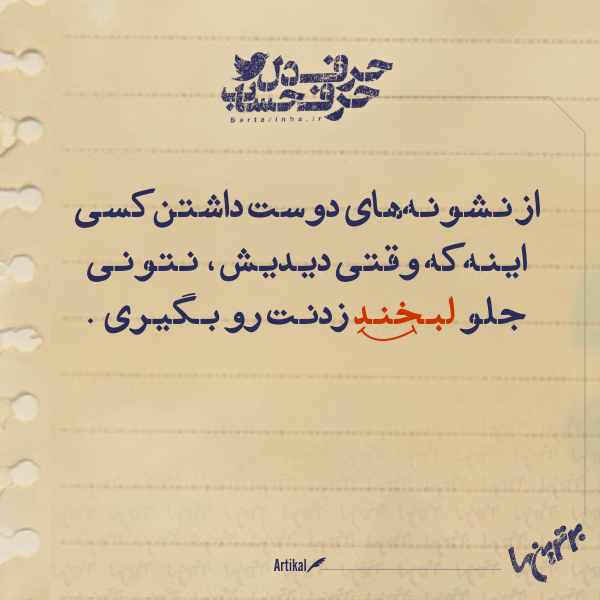 حرف دل
حرف حساب
Bartarinha.ir
از نشونه‌های دوست داشتن کسی
اینه که وقتی دیدیش، نتونی
جلو لبخند زدنت رو بگیری.
Artikal
برترین‌ها